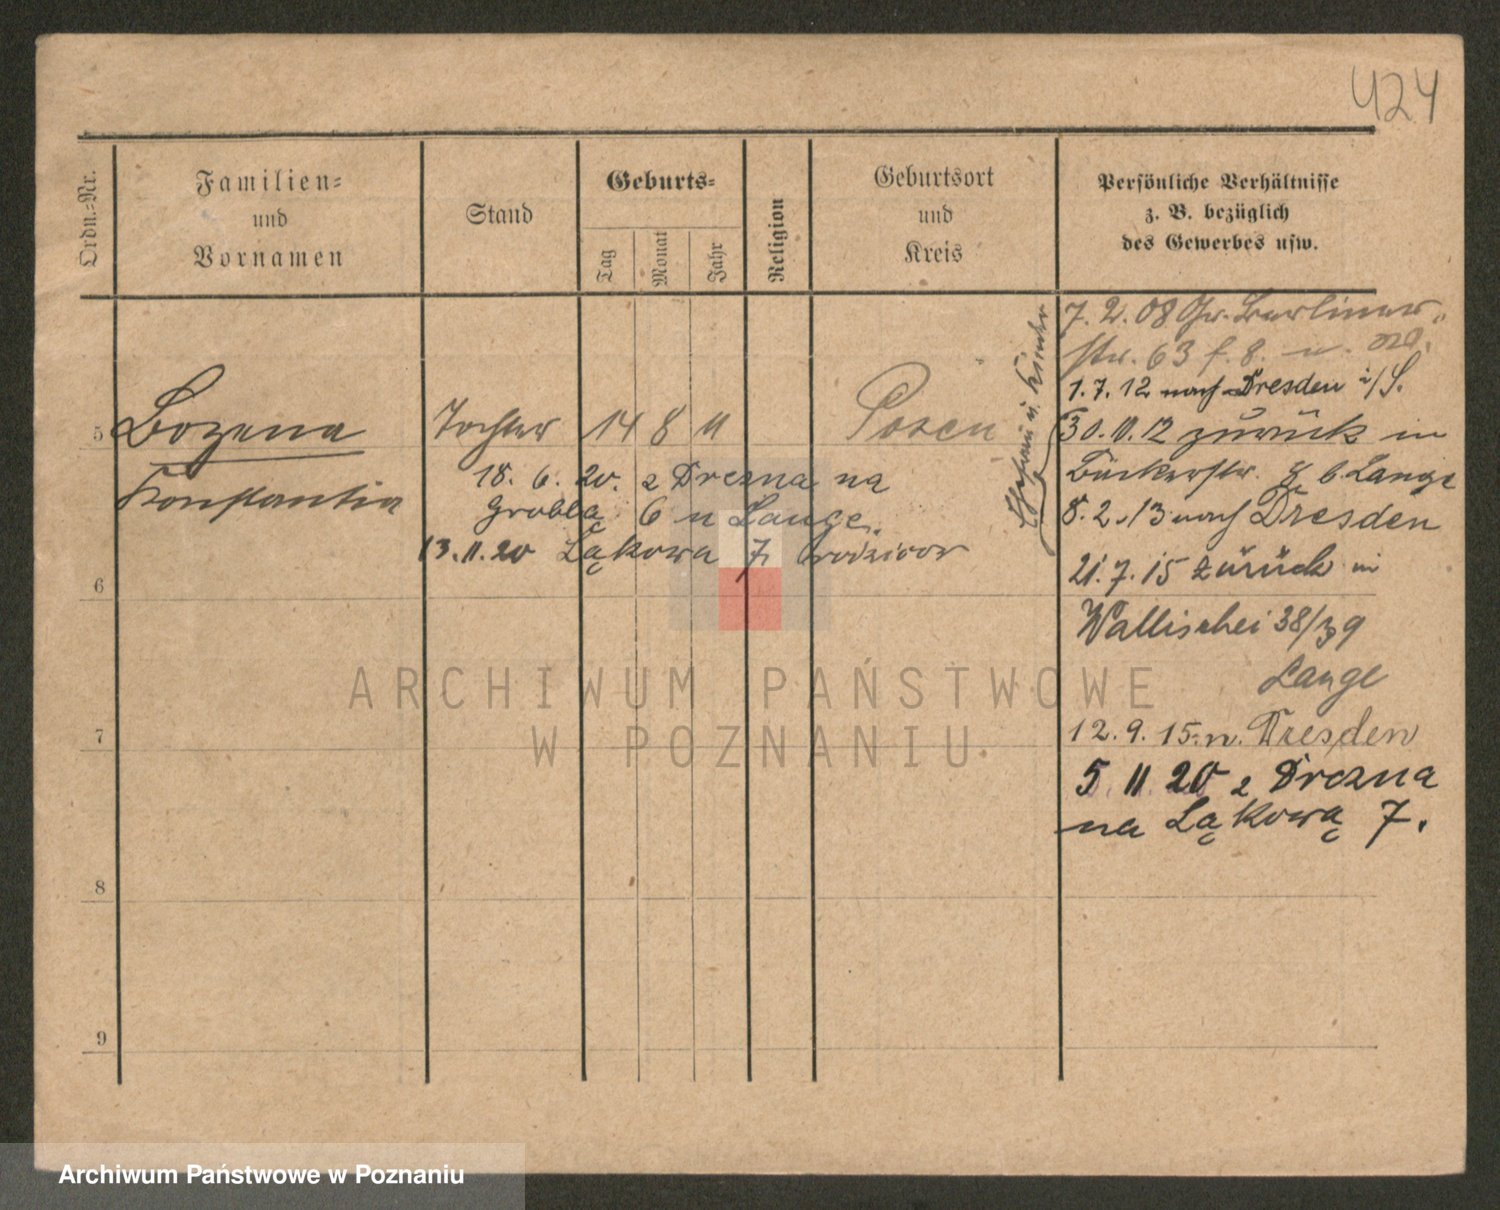 424
Ordn.-Nr.
Familien-
und
Vornamen
Stand
Geburts-
Tag
Monat
Jahr
Religion
Geburtsort
und
Kreis
Persönliche Verhältnisse
z. B. bezüglich
des Gewerbes usw.
5
Bozena
Konstantia
Tochter
14 8 11
Posen
18. 6. 20. z Drezna na
Groblą 6 u Lange.
13.11.20 Łąkowa 7 rodziców
Ehefrau u. Kinder
7. 2. 08 Gr. Berliner-
str. 63
1. 7. 12 nach Dresden i/S.
30. 11. 12 zurück in
Bäckerstr. 8 b. Lange
8. 2. 13 nach Dresden
21. 7. 15 zurück in
Wallischei 38/39
Lange
12. 9. 15. n. Dresden
5. 11. 20 z Drezna
na Łąkową 7.
6
7
8
9
ARCHIWUM PAŃSTWOWE
W POZNANIU
Archiwum Państwowe w Poznaniu